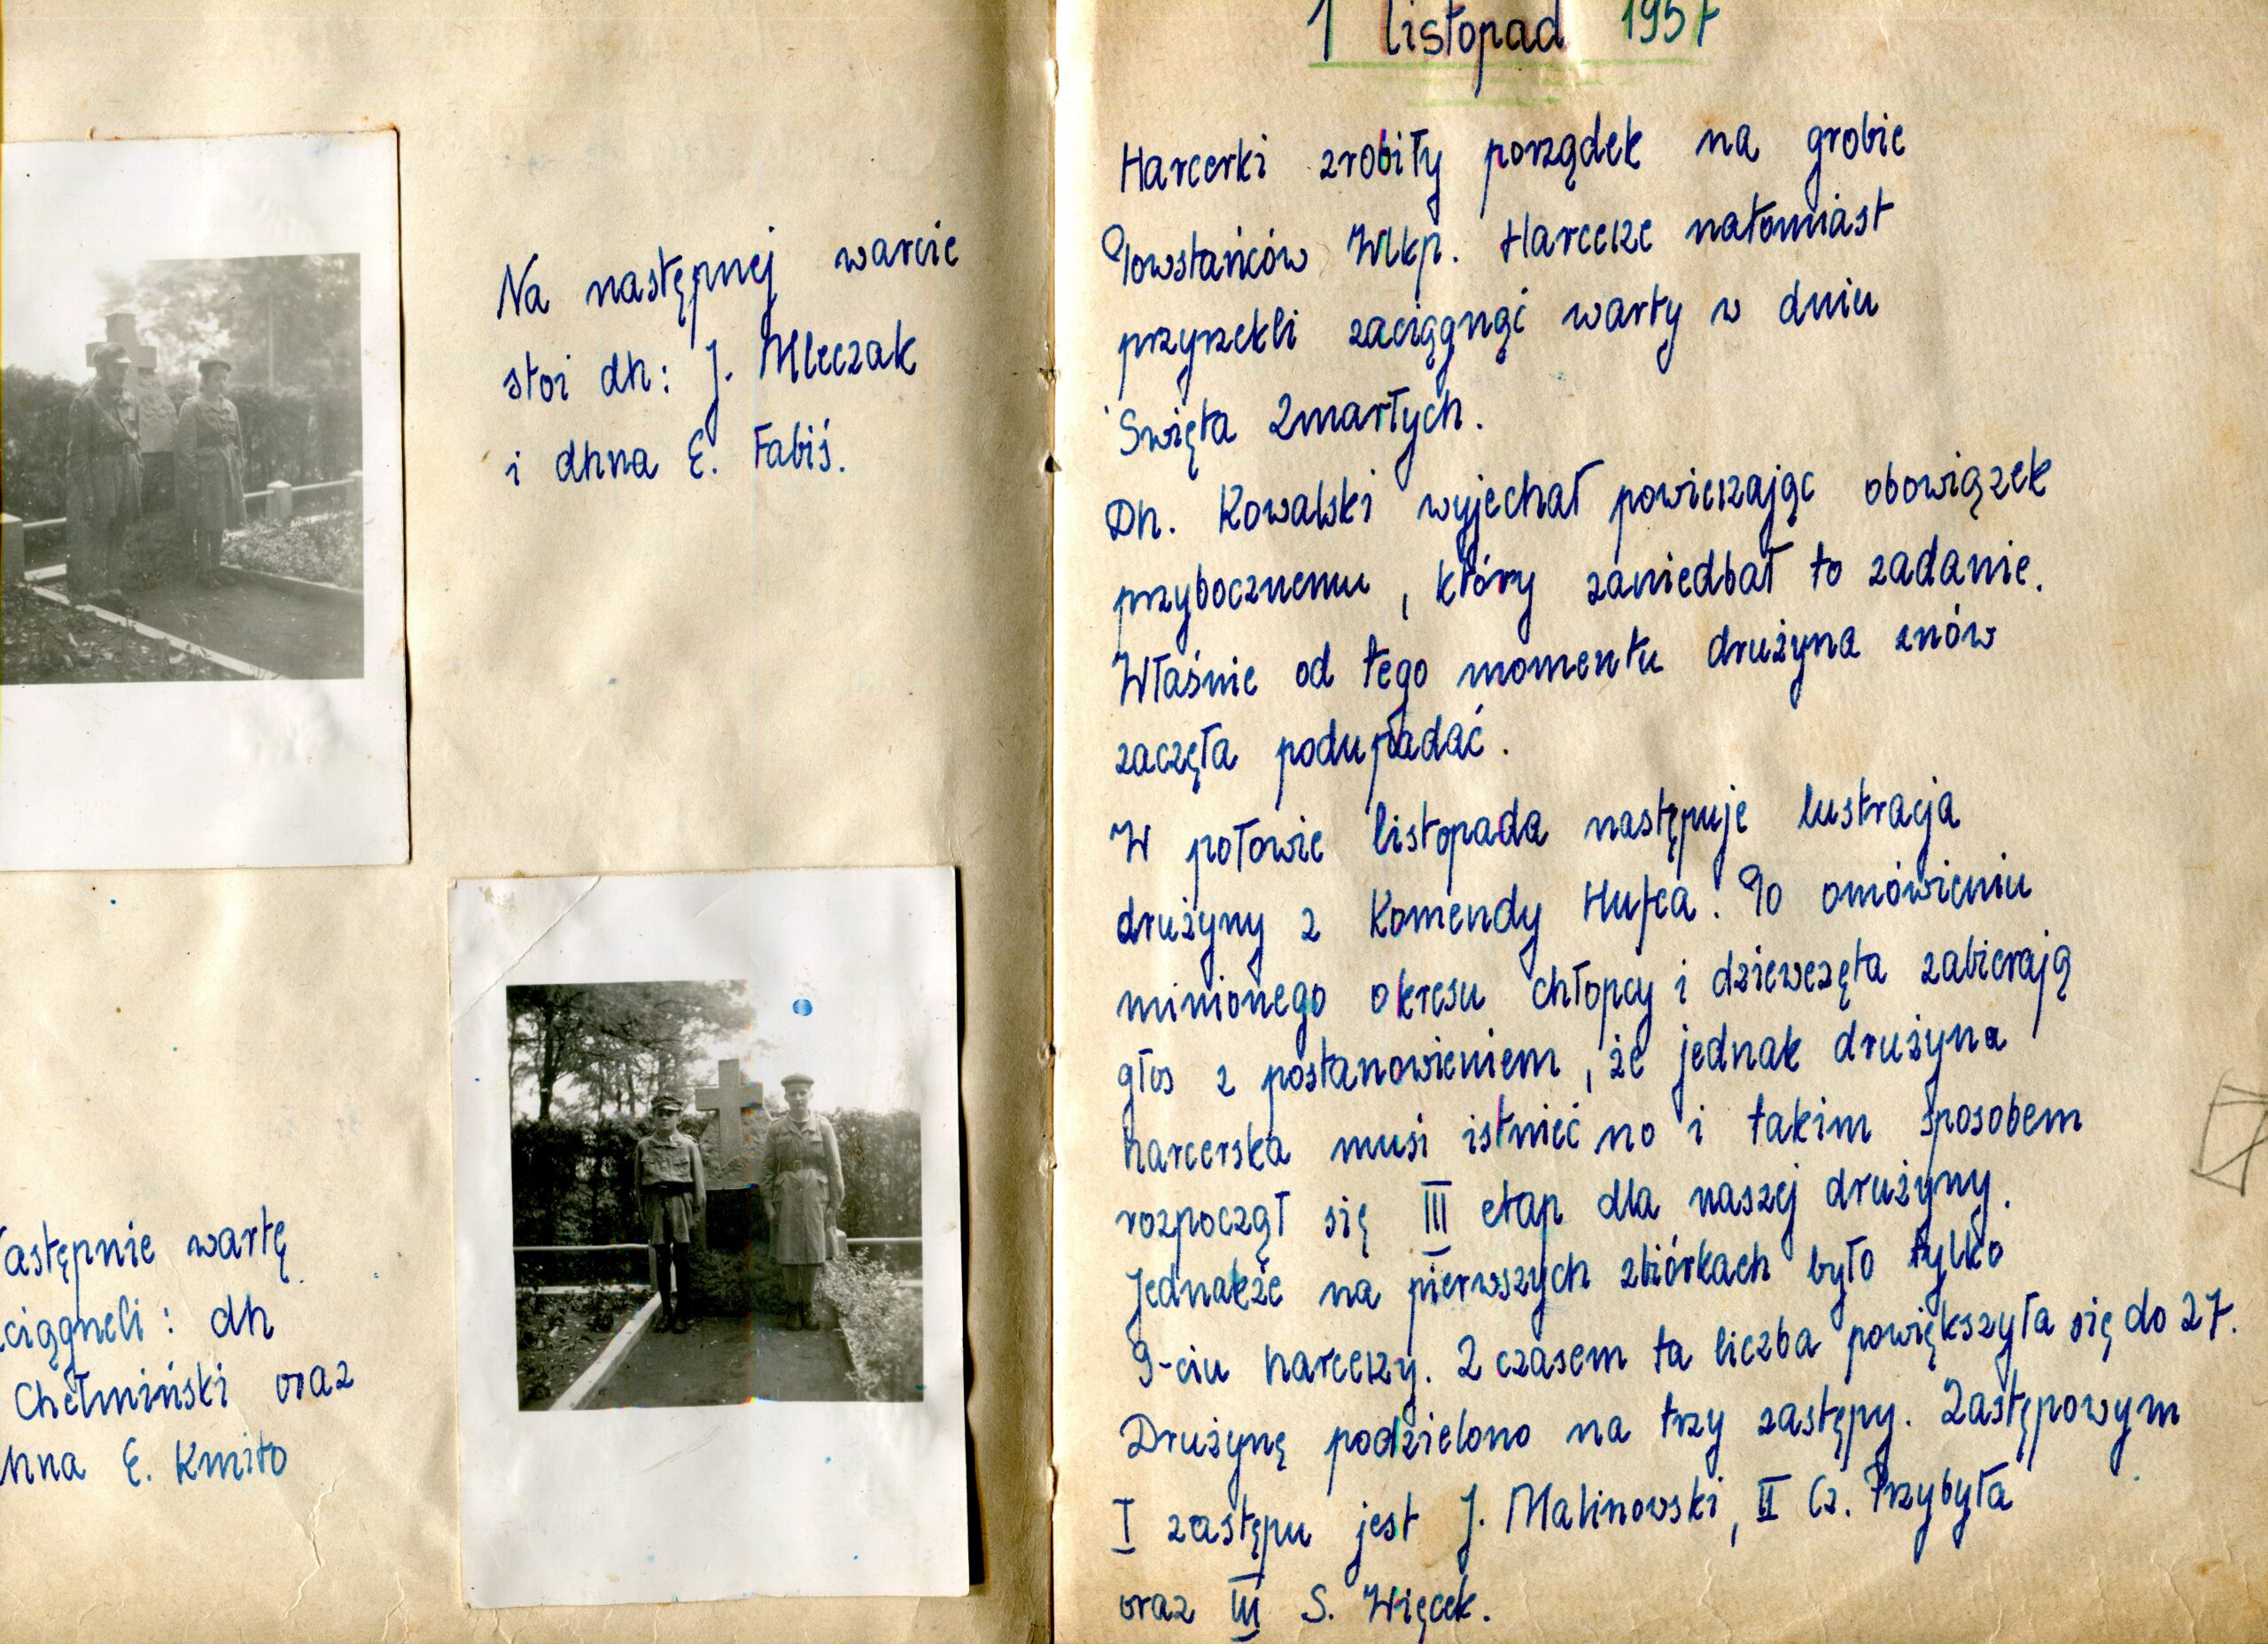 Na następnej warcie
stoi dh: J. Mleczak
i dhna E. Fabiś.
astępnie wartę
ciągneli: dh
Chełmiński oraz
hna E. Kmito
1 listopad 1957
Harcerki zrobiły porządek na grobie
Powstańców Wlkp. Harcerze natomiast
przyrzekli zaciągnąć warty w dniu
Święta Zmarłych.
Dh. Kowalski wyjechał powierzając obowiązek
przybocznemu, który zaniedbał to zadanie.
Właśnie od tego momentu drużyna znów
zaczęła podupadać.
W połowie listopada następuje lustracja
drużyny z Komendy Hufca. Po omówieniu
minionego okresu chłopcy i dziewczęta zabierają
głos z postanowieniem, że jednak drużyna
harcerska musi istnieć no i takim sposobem
rozpoczął się III etap dla naszej drużyny.
Jednakże na pierwszych zbiórkach było tylko
9-ciu harcerzy. Z czasem ta liczba powiększyła się do 27.
Drużynę podzielono na trzy zastępy. Zastępowym
I zastępu jest J. Malinowski, II Cz. Przybyła
oraz III S. Więcek.